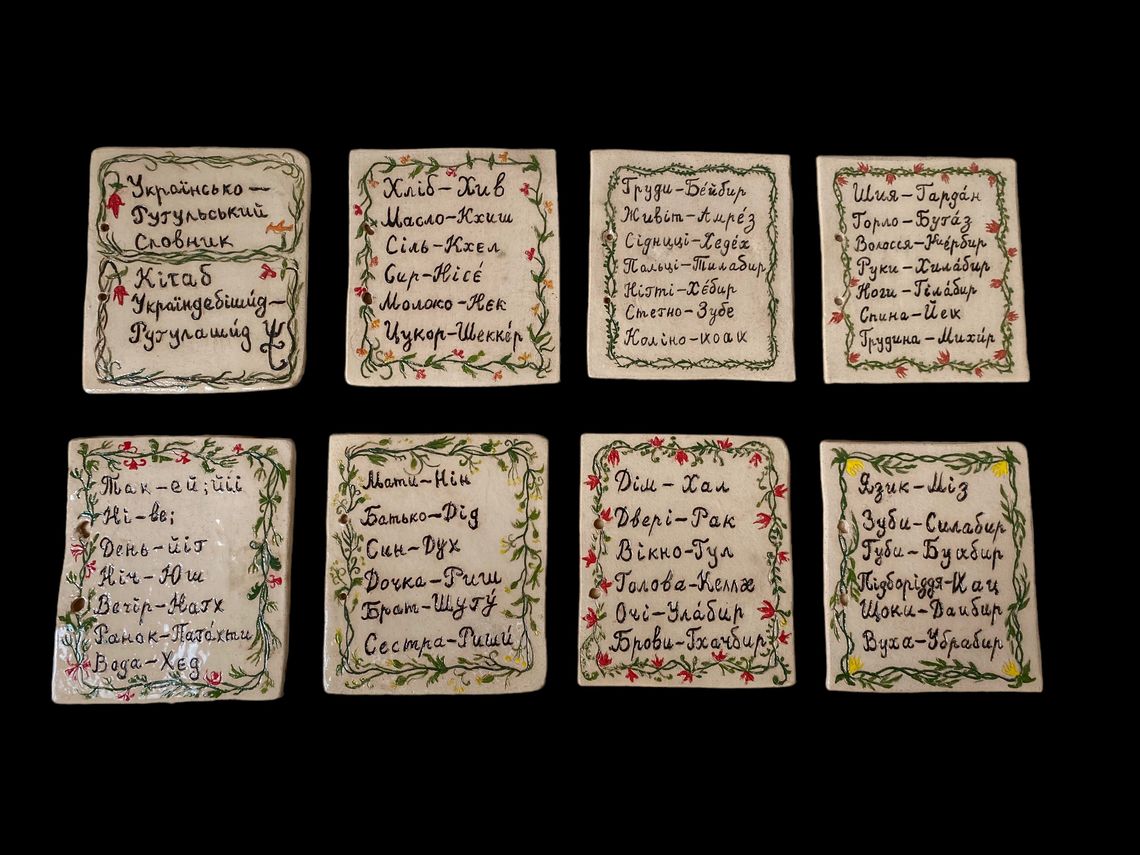 Українсько—
Рутульський
Словник
Кітаб
Українdебішид—
Рутулашид
Хліб-Хив
Масло-Кхиш
Сіль-Кхел
Сир-Нісе́
Молоко-Нек
Цукор-Шекке́р
Груди-Бе́йбир
Живіт-Аире́з
Сідниці-Хеде́х
Пальці-Тилабир
Нігті-Хе́бир
Стегно-Зубе
Коліно-
Шия-Гарда́н
Горло-Буга́з
Волосся-
Руки-Хила́бир
Ноги-Гіла́бир
Спина-Йек
Грудина-Михи́р
Так-ей;йіі
Ні-ве;
День-йіг
Ніч-Юш
Вечір-Натх
Ранок-Пага́хти
Вода-Хєд
Мати-Нін
Батько-Дід
Син-Дух
Дочка-Риш
Брат-Шугу́
Сестра-Риши́
Дім-Хал
Двері-Рак
Вікно-Гул
Голова-
Очі-Ула́бир
Брови-Гхачбир
Язик-Міз
Зуби-Силабир
Губи-Бухбир
Підборіддя-Кац
Щоки-Даибир
Вуха-Убрабир